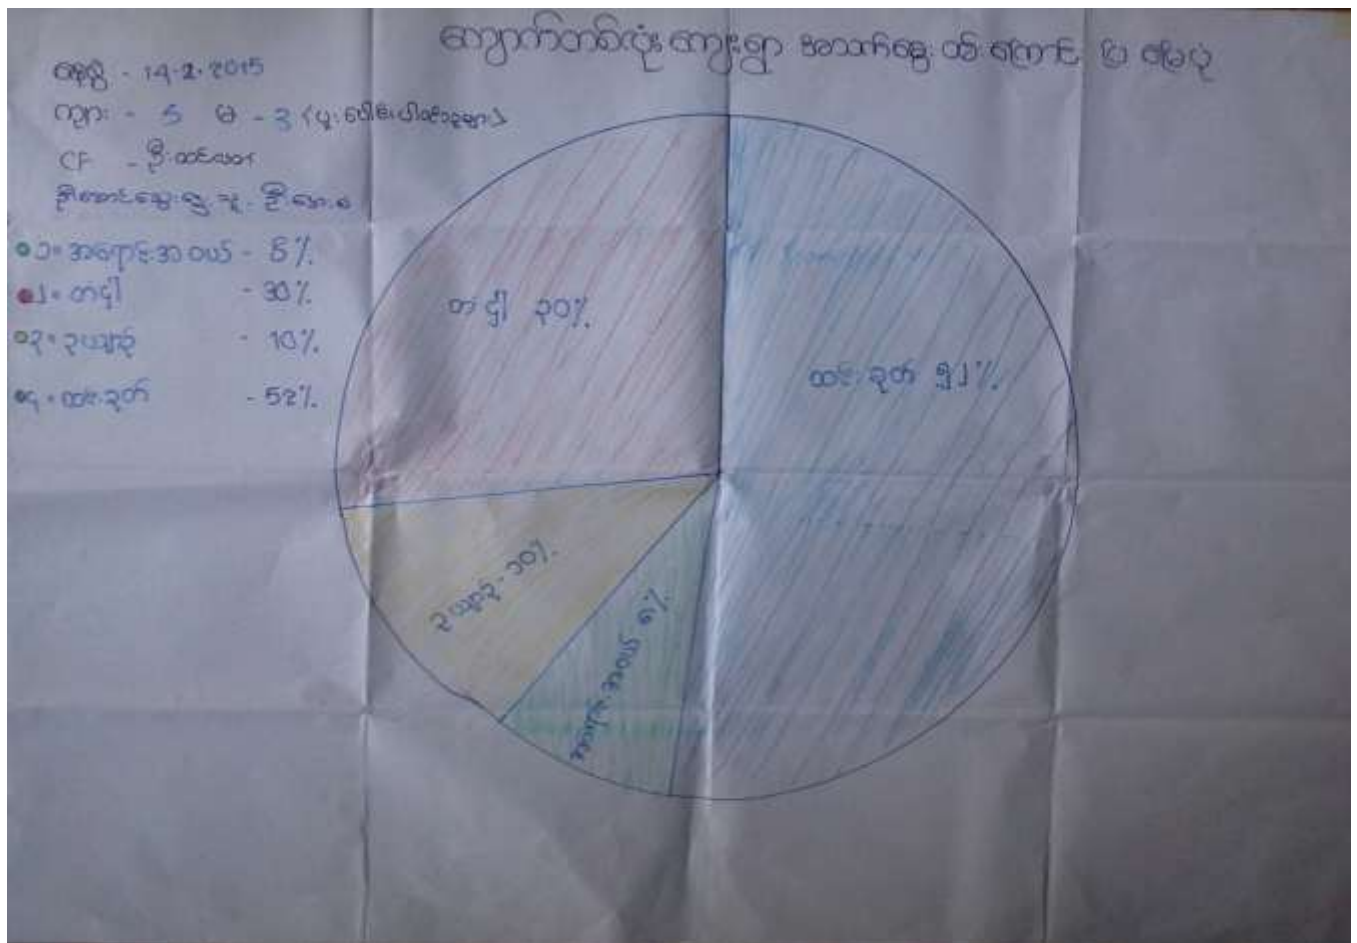 ကျောက်တစ်လုံးကျေးရွာ အသက်မွေးဝမ်းကြောင်း ပြ မြေပုံ
နေ့စွဲ - 14-2-2015
ကျား - 5 မ - 3 (ပူးပေါင်းပါဝင်သူများ)
CF - ဦး
၁။ အရောင်းအဝယ် - 8%
၂။ တငှါ - 30%
၃။ ဥယျာဉ် - 10%
၄။ ထင်းခုတ် - 52%
တံငှါ ၃၀%
ထင်းခုတ် ၅၂%
ဥယျာဉ် - ၁၀%
အရောင်းအဝယ် ၈%